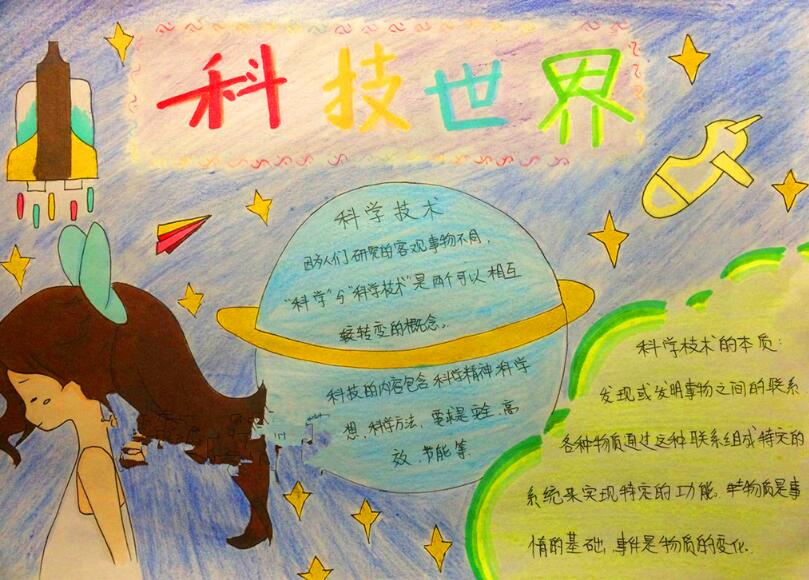 科技世界
科学技术
因为人们研究的客观事物不同，
"科学"与"科学技术"是两个可以相互
转变的概念。
科技的内容包含科学精神 科学
想，科学方法，要求是 全、高
效、节能等
科学技术的本质：
发现或发明事物之间的联系
各种物质通过这种联系组成特定的
系统来实现特定的功能。物质是事
情的基础，事件是物质的变化。